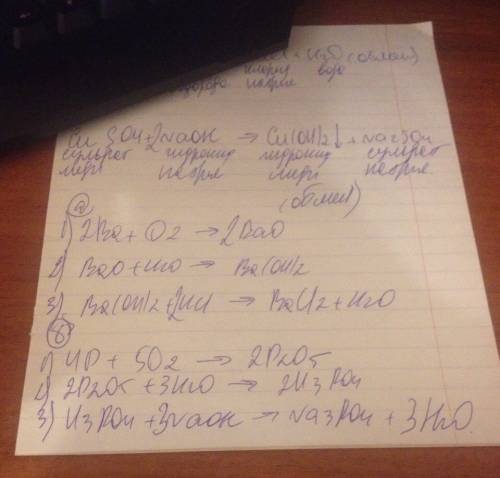 + H2O (обмен)
хлорид вода
водорода натрия
CuSO4 + 2NaOH → Cu(OH)2↓ + Na2SO4
сульфат гидроксид гидроксид сульфат
меди натрия меди натрия
(обмен)
а
1) 2Ba + O2 → 2BaO
2) BaO + H2O → Ba(OH)2
3) Ba(OH)2 + 2HCl → BaCl2 + H2O
б
1) 4P + 5O2 → 2P2O5
2) 2P2O5 + 3H2O → 2H3PO4
3) H3PO4 + 3NaOH → Na3PO4 + 3H2O.